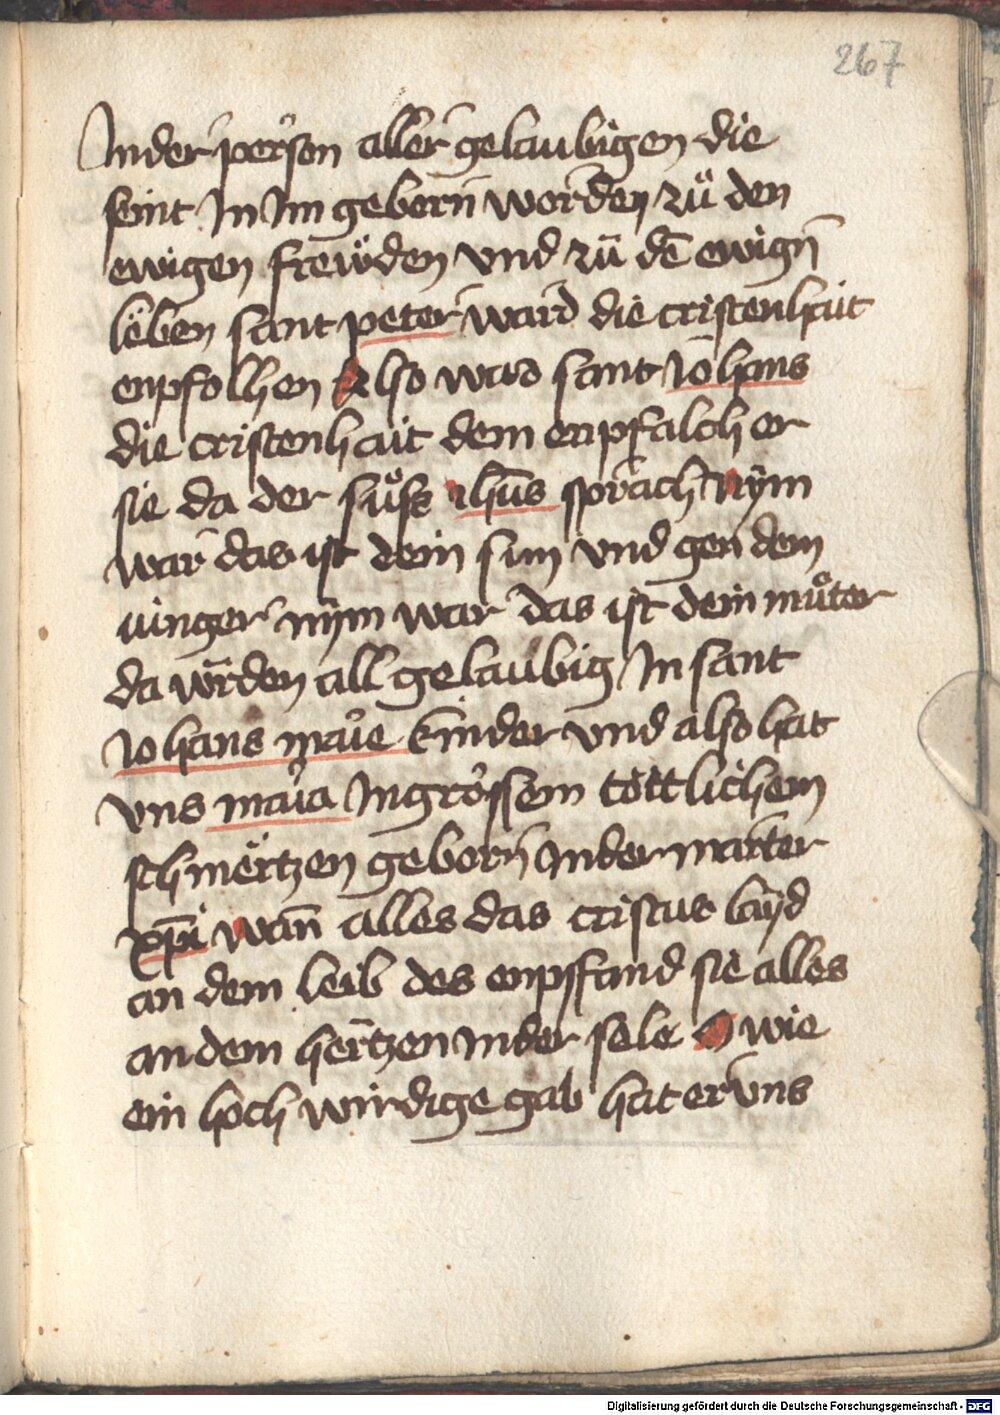 267
In der person aller gelaubigen die
seint In Im geborn̄ worden zů den
ewigen frewden vnd zū dē ewign̄
leben sant peter ward die cristenhait
enpfolhen Also ward sant Iōhans
die cristenhait dem enpfalch er
sie da der sůsse ihūs sprach Nÿm
war das ist dein sun vnd gen dem
iunger nÿm war das ist dein můter
da wurden all gelaubig In sant
Iohans kinder vnd also hat
vns maria In grossem töttlichem
schmertzen geborn̄ In der marter
xp̄i wan̄ alles das cristus layd
an dem leib des enpfand sie alles
an dem hertzen In der sele O wie
ein hoch wirdige gab hat er vns
Digitalisierung gefördert durch die Deutsche Forschungsgemeinschaft - DFG